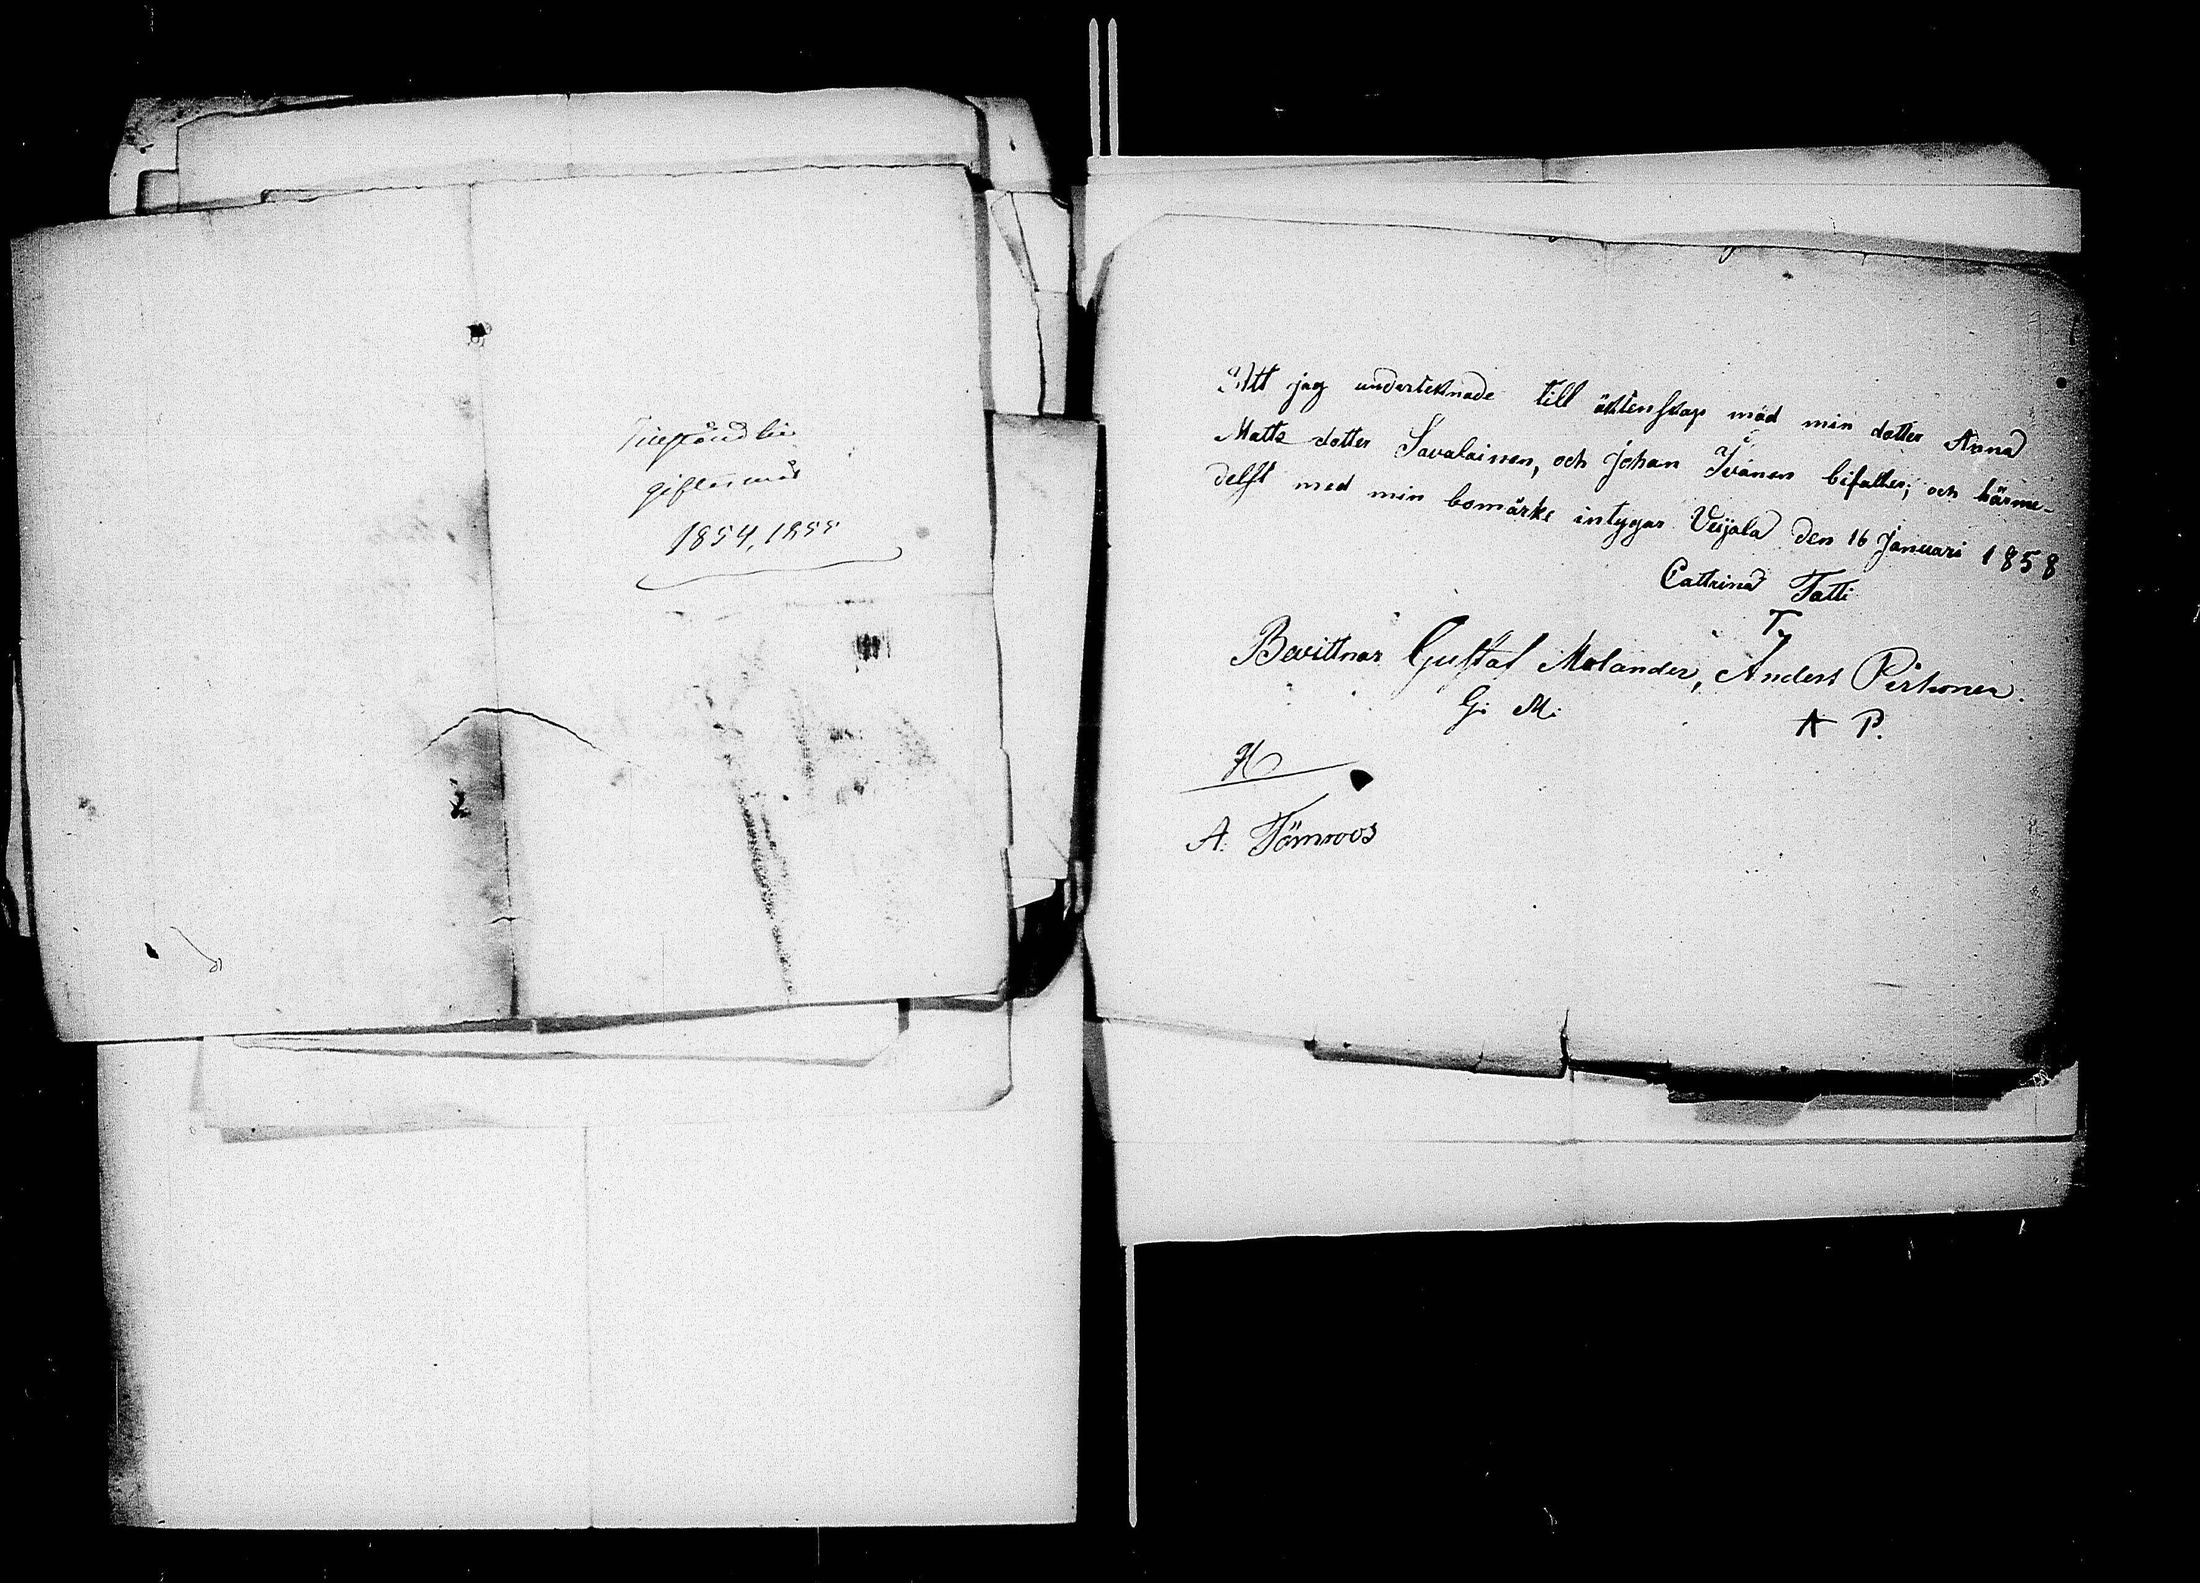 giftermål
1854, 1855
Att jag underteknade till äktenskap mäd min dotter Anna
Matts dotter Savalainen, och Johan Ivanen bifaller; och härme-
delst med min bomärke intygar Veijala den 16 Januari 1858
Cattrina Tatti
T
Bevittnar Gustaf Molander, Anders Pirhonen.
G: M: A P.
A. Törnroos